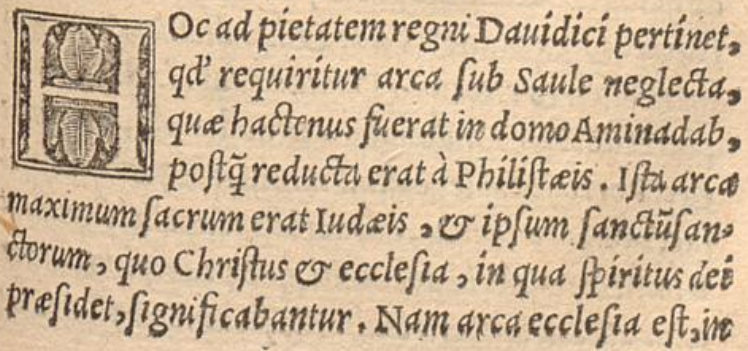 HOc ad pietatem regni Dauidici pertinet,
qd' requiritur arca sub Saule neglecta,
quæ hactenus fuerat in domo Aminadab,
postq̃ reducta erat à Philistæis. Ista arca
maximum sacrum erat Iudæis, & ipsum sanctũ san-
ctorum, quo Christus & ecclesia, in qua spiritus dei
præsidet, significabantur. Nam arca ecclesia est, in